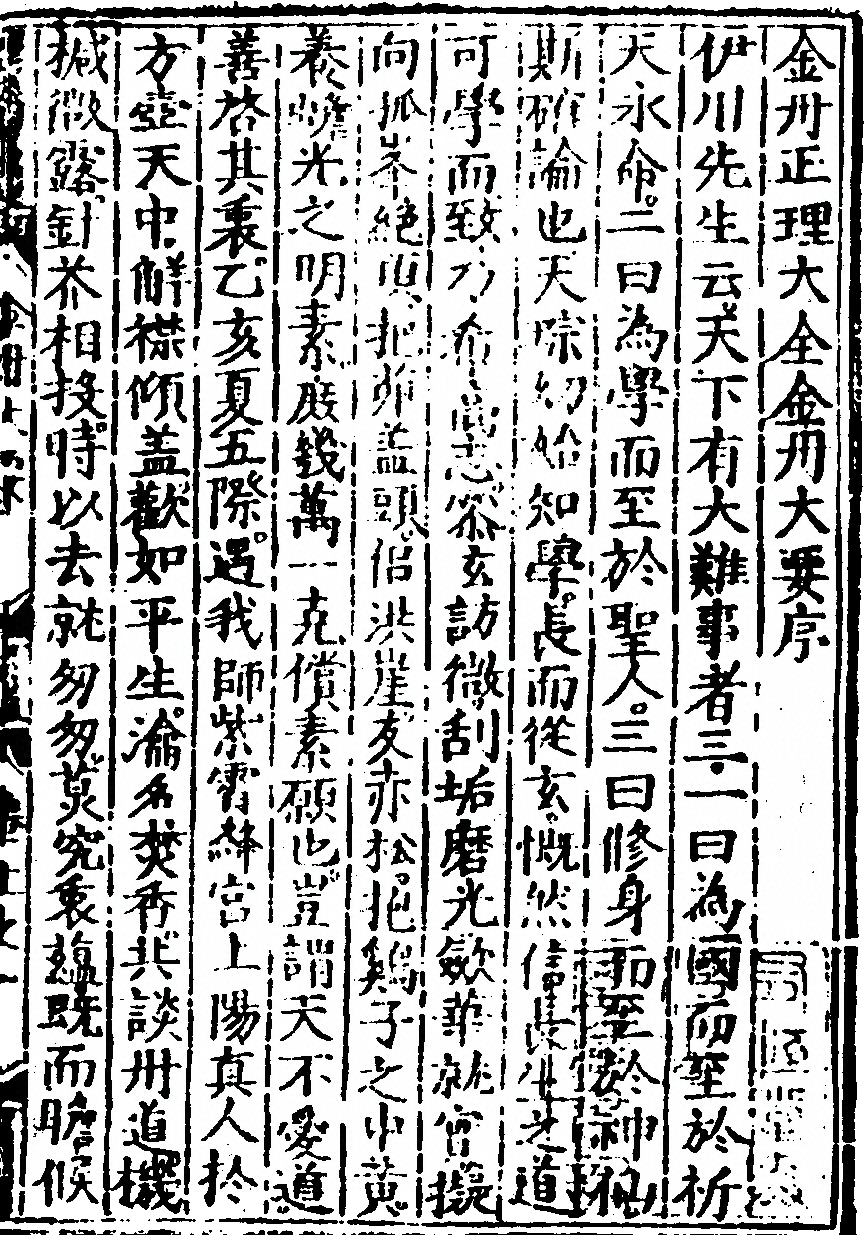 金丹正理大全金丹大要序
伊川先生云天下有大難事者三一曰為國而至於祈
天永命二曰為學而至於聖人三曰修身而至於神仙
斯確論也天琮幼始知學長而從玄慨然信其必之道
可學而致乃希尚志釋玄訪微刮垢磨光歛華就實擬
向孤峯絕頂把茆蓋頭侶洪崖友赤松抱鷄子之中黄
養蟾光之明素庶幾萬一克償素願也豈謂天不愛道
善啓其衷乙亥夏五際遇我師紫霄絳宫上陽真人扵
方壺天中解襟傾盖歡如平生瀹茗焚香共談丹道機
椷微露針芥相投時以去就匆匆莫究衷藴既而瞻候